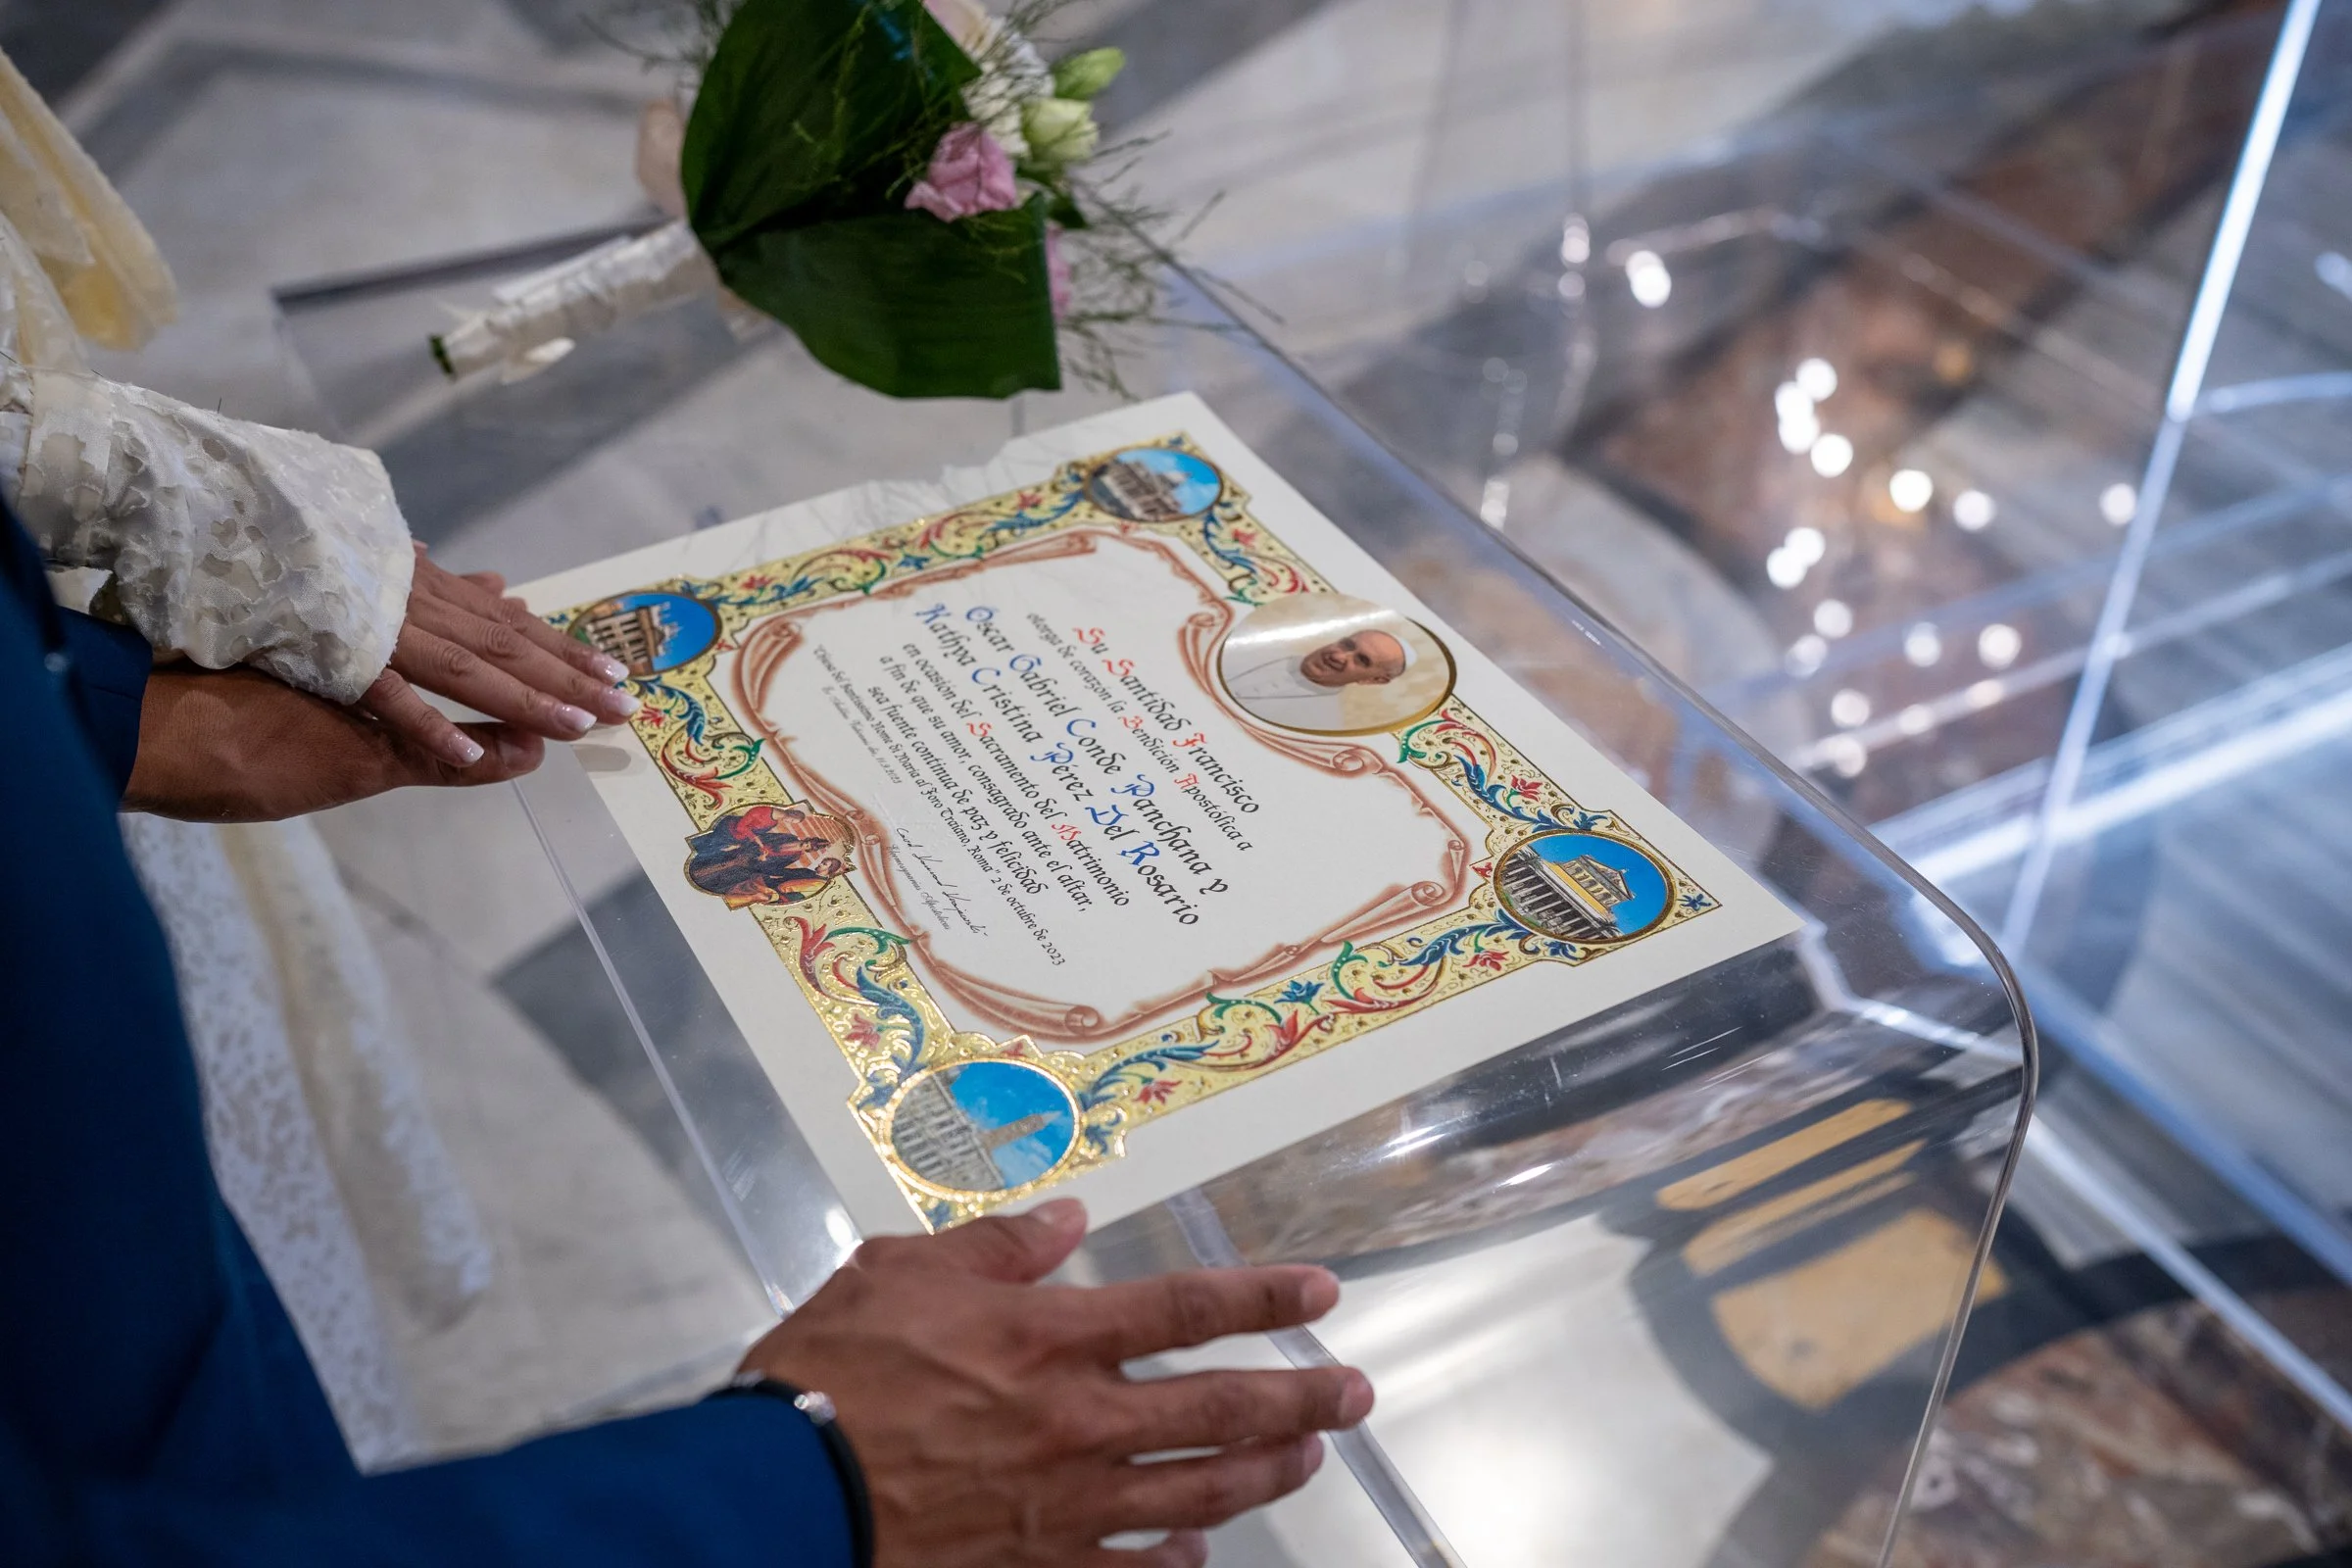 Su Santidad Francisco
otorga de corazón la Bendición Apostólica a
Oscar Gabriel Conde Panchana y
Kathya Cristina Pérez Del Rosario
en ocasión del Sacramento del Matrimonio
a fin de que su amor, consagrado ante el altar,
sea fuente continua de paz y felicidad
Nome di Maria al Foro Traiano, Roma" 2 de octubre de 2023